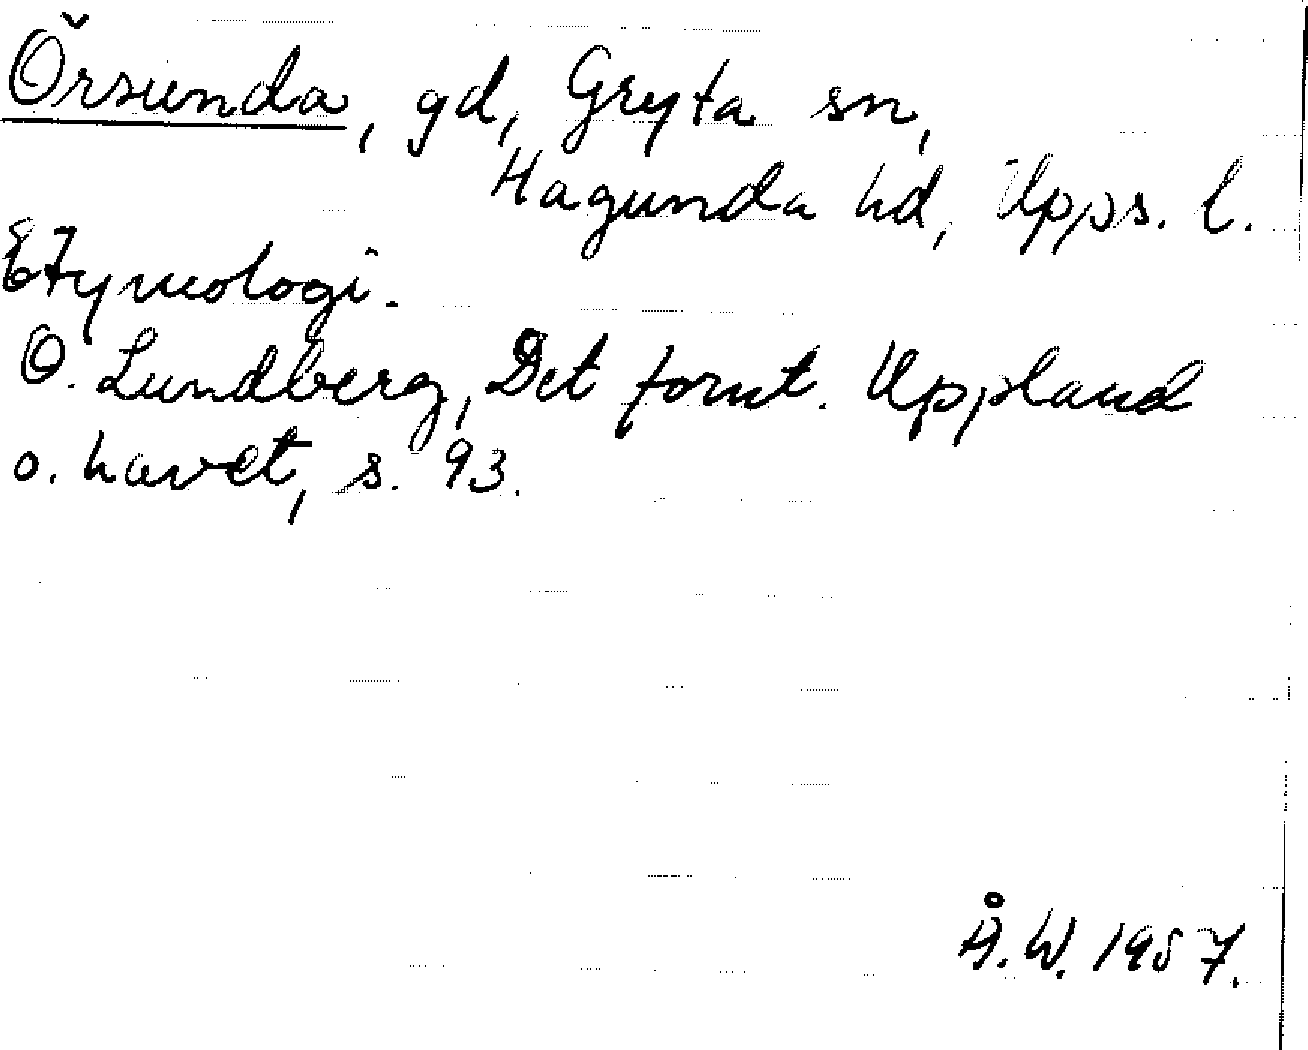 Örsunda, gd, Gryta sn,
Hagunda hd, Upps. l.
Etymologi.
O. Lundberg, Det fornt. Uppland
o. havet, s. 93.
Å.W. 1957.